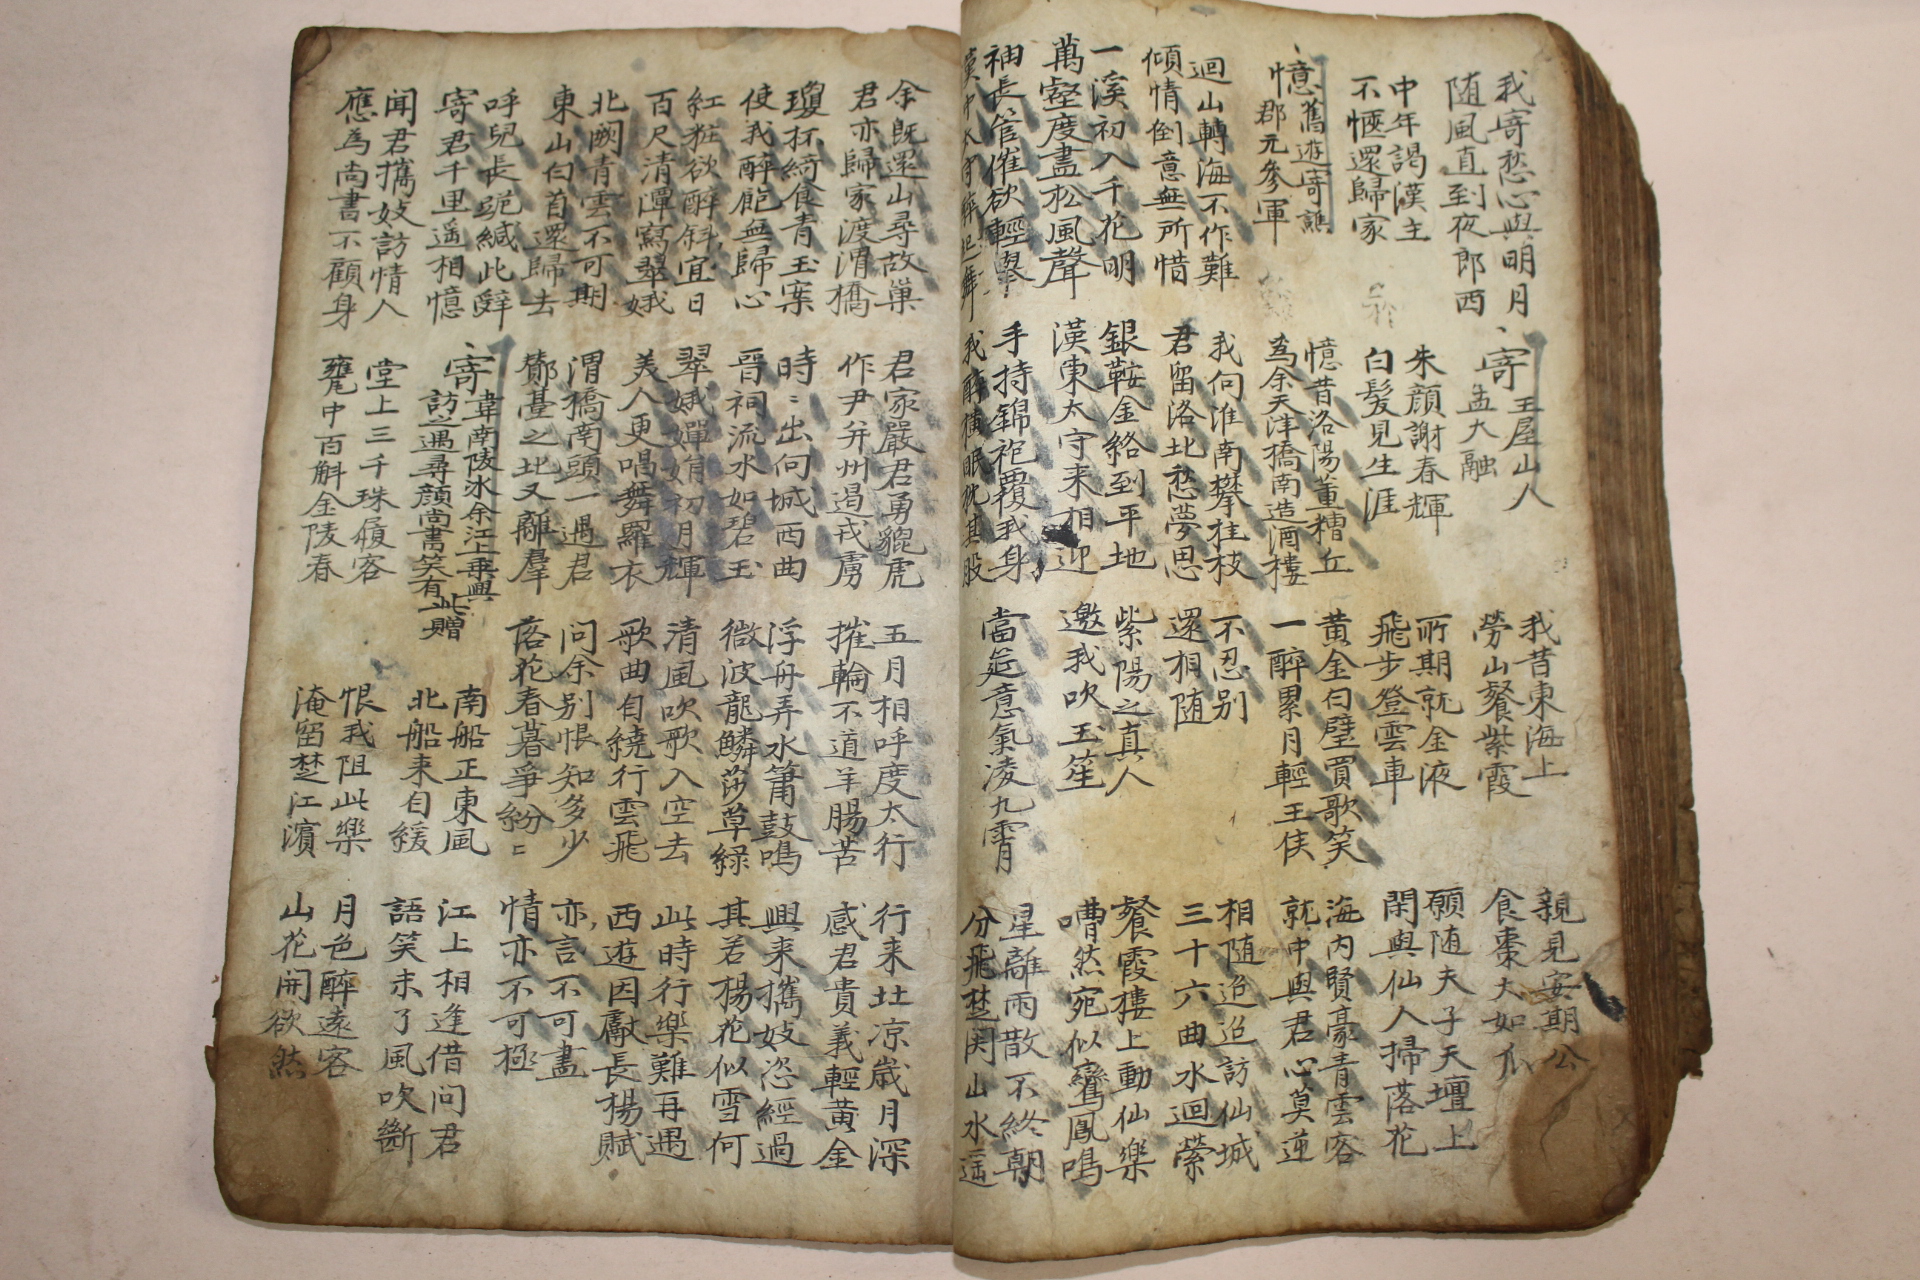 我寄愁心與明月
随風直到夜郎西
寄王屋山人
孟大融
我昔東海上
勞山餐紫霞
親見安期公
食棗大如瓜
中年謁漢主
不愜還歸家
朱顔謝春輝
白髮見生涯
所期就金液
飛步登雲車
願随夫子天壇上
閑與仙人掃落花
憶舊遊寄譙
郡元參軍
憶昔洛陽董糟丘
為余天津橋南造酒樓
黃金白璧買歌笑
一醉累月輕王侯
海内賢豪青雲客
就中與君心莫逆
迴山轉海不作難
傾情倒意無所惜
我向淮南攀桂枝
君留洛北愁夢思
不忍别
還相随
相随迢迢訪仙城
三十六曲水迴縈
一溪初入千花明
萬壑度盡松風聲
銀鞍金絡到平地
漢東太守来相迎
紫陽之真人
邀我吹玉笙
餐霞樓上動仙樂
嘈然宛似鸞鳳鳴
袖長管催欲輕舉
漢中太守醉起舞
手持錦袍覆我身
我醉橫眠枕其股
當筵意氣凌九霄
星離雨散不終朝
分飛楚関山水遥
余既還山尋故巢
君亦歸家渡渭橋
君家嚴君勇貔虎
作尹并州遏戎虜
五月相呼度太行
摧輪不道羊腸苦
行来北凉歲月深
感君貴義輕黃金
瓊杯綺食青玉案
使我醉飽無歸心
時〻出向城西曲
晋祠流水如碧玉
浮舟弄水簫鼓鳴
微波龍鱗莎草緑
興来攜妓恣經過
其若楊花似雪何
紅粧欲醉斜宜日
百尺清潭寫翠娥
翠娥嬋娟初月輝
美人更唱舞羅衣
清風吹歌入空去
歌曲自繞行雲飛
此時行樂難再遇
西遊因獻長楊賦
北闕青雲不可期
東山白首還歸去
渭橋南頭一遇君
酇臺之北又離羣
问余别恨知多少
落花春暮爭紛〻
亦言不可盡
情亦不可極
呼兒長跪緘此辭
寄君千里遥相憶
寄韋南陵冰余江上乘興
訪之遇尋顔尚書笑有此贈
南船正東風
北船来自緩
江上相逢借问君
語笑未了風吹斷
闻君攜妓訪情人
應為尚書不顧身
堂上三千珠履客
甕中百斛金陵春
恨我阻此樂
淹留楚江濱
月色醉遠客
山花開欲然